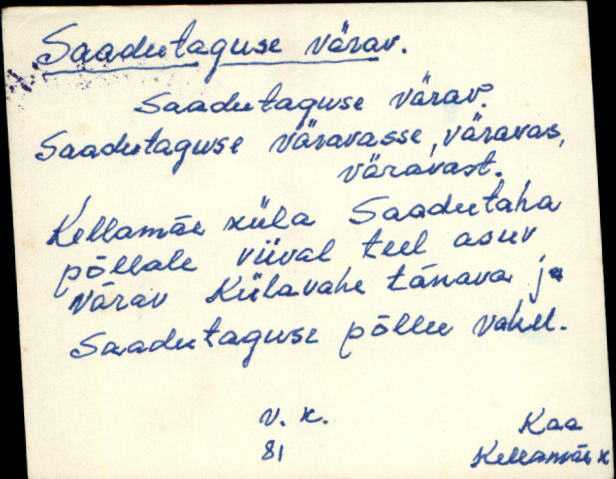 Saadutaguse värav.
Saadutaguse värav.
Saadutaguse väravasse, väravas,
väravast.
Kellamäe küla Saadutaha
põllale viival teel asuv
värav Külavahe tänava ja
Saadutaguse põllu vahel.
v. k.
81
Kaa
Kellamäe k